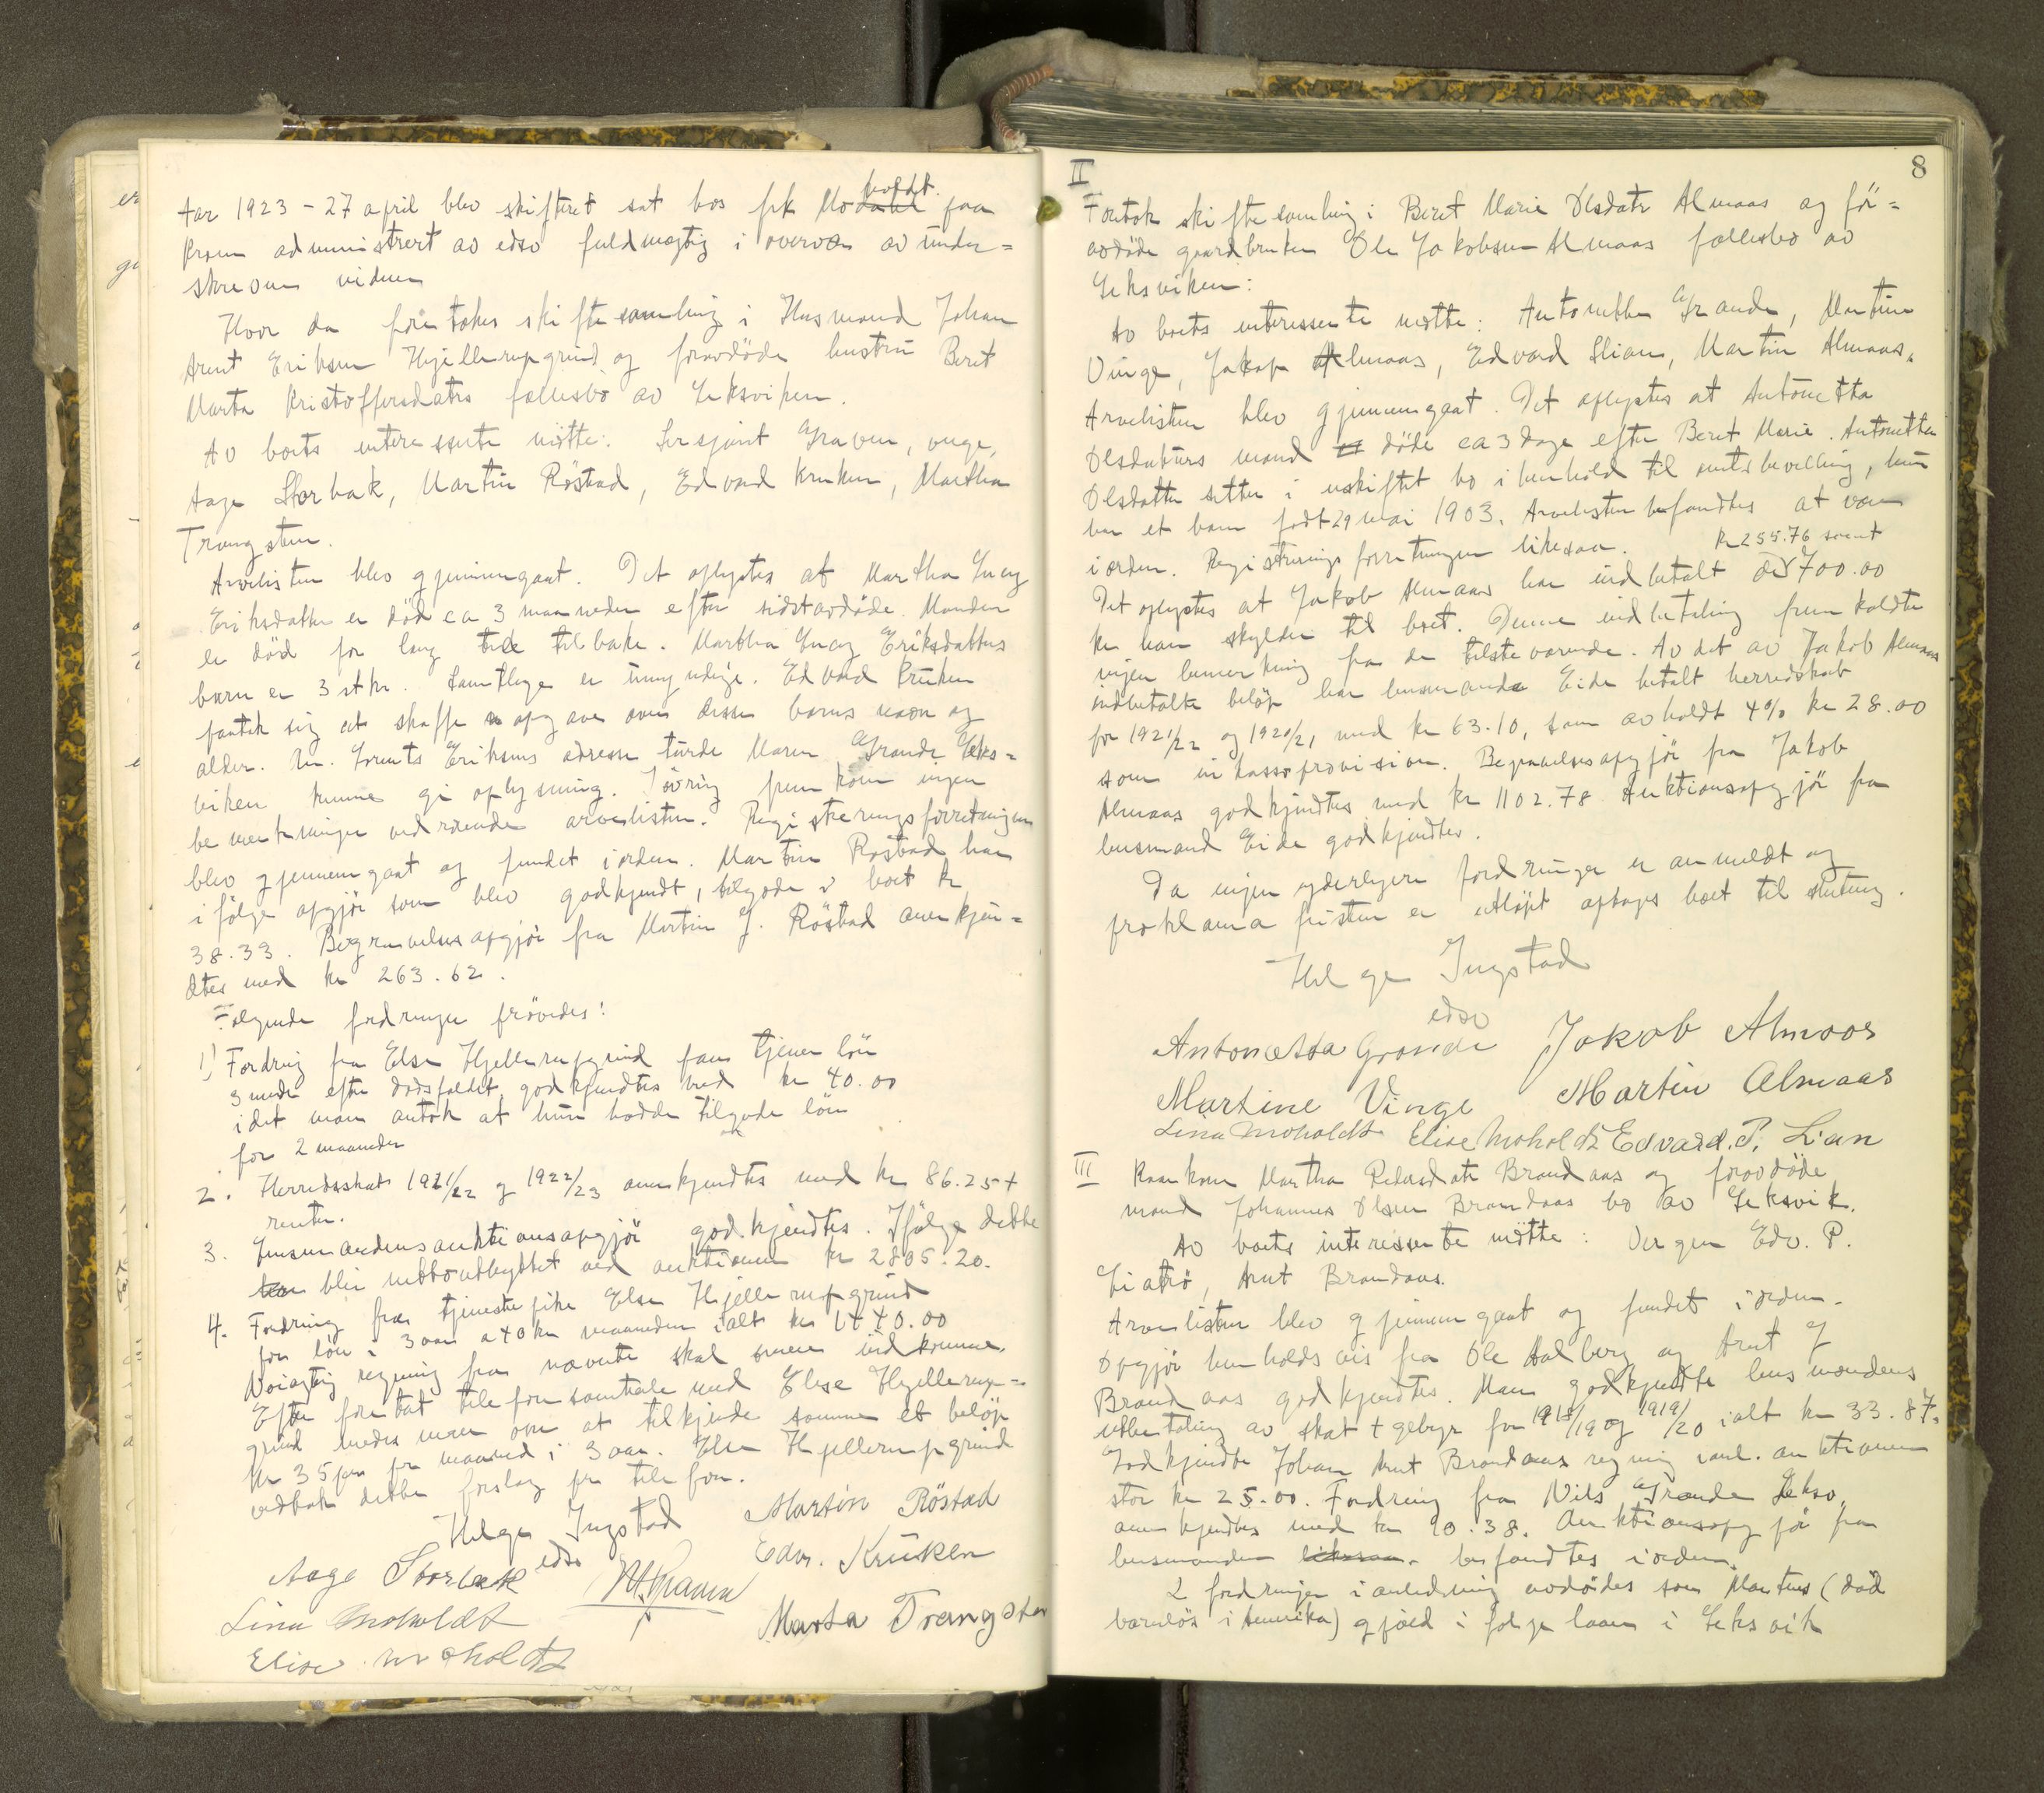 Aar 1923 - 27 april blev skifteret sat hos frk Moholdt paa
Kroen administrert av edsv fuldmægtig i overvær av under=
skrevne vidner
Hvor da foretokes skiftesamling i Husmand Johan
Arnt Eriksen Hjellerupgrind og foravdöde hustru Beret
Marta Kristoffersdatrs fællesbo av Leksviken.
Av boets interessente mötte: Sersjant Graven, verge,
Aage Storbak, Martin Röstad, Edvard Kruken, Martha
Trangsten.
Arvelisten blev gjennemgaat. Det oplystes at Martha
Eriksdatter er död ca 3 maaneder efter sidstavdöde. Manden
er död for lang tid tilbake. Martha Eriksdatters
barn er 3 stkr. Samtlige er umyndige. Edvard Kruken
paatok sig at skaffe opgave over disses barns navn og
alder. Lorents Eriksens adresse turde Maren Grande Leks=
viken kunne gi oplysning. Iövrig fremkom ingen
bemerkninger vedrörende arvelisten. Registreringsforretningen
blev gjennemgaat og fundet iorden. Martin Röstad har
i følge opgjör som blev godkjendt, tilgode i boet kr
38.33. Begravelsesopgjör fra Martin J. Röstad anerkjen=
dtes med kr 263.62.
Følgende fordringer prövedes:
1) Fordring fra Else Hjellerupgrind paa tjener lön
3 mndr efter dødsfaldet godkjendtes med kr 40.00
idet man antok at hun hadde tilgode lön
for 2 maaneder
2. Herredsskat 1921/22 og 1922/23 anerkjendtes med kr 86.25 +
renter.
3. Lensmandens auktionsopgjör godkjendtes. Ifølge dette
blir nettoutbyttet ved auktionen kr 2805.20.
4. Fordring fra tjenestepike Else Hjellerupgrind
for lön i 3 aar a 40 kr maaneden ialt kr 1440.00
Nöiagtig regning fra nævnte skal senere indkomme.
Efter foretat telefonsamtale med Else Hjellerup=
grind enedes man om at tilkjende samme et beløp
kr 35 pr maaned i 3 aar. Else Hjellerupgrind
vedtok dette forslag pr telefon.
Helge Ingstad Martin Röstad
edsv
Aage Storbak Edv. Kruken
Lina Moholdt Marta Trangsten
Elise Moholdt
8
II
Foretok skiftesamling i Beret Marie Olsdatr Almaas og för=
avdöde gaardbruker Ole Jakobsen Almaas fællesbo av
Leksviken:
Av boets interessente mötte: Antonette Grande, Martine
Vinge, Jakob Almaas, Edvard Lian, Martin Almaas.
Arvelisten blev gjennemgaat. Det oplystes at Antonetta
Olsdaturs mand döde ca 3 dage efter Beret Marie. Antonetta
Olsdatter sitter i uskiftet bo i henhold til amtsbevilling, hun
har et barn født 29 mai 1903. Arvelisten befandtes at være
iorden. Registreringsforretningen likesaa. kr 255.76 samt
Det oplystes at Jakob Almaas har indbetalt de 700.00
kr han skylder til boet. Denne indbetaling fremkaldte
ingen bemerkning fra de tilstedeværende. Av det av Jakob Almaas
indbetalte beløp har lensmand Eide betalt herredskat
for 1921/22 og 1920/21 med kr 63.10, samt avholdt 4% kr 28.00
som inkassoprovision. Begravelsesopgjör fra Jakob
Almaas godkjendtes med kr 1102.78. Auktionsopgjör fra
lensmand Eide godkjendtes.
Da ingen yderligere fordringer er anmeldt og
proklama fristen er utløpt optages boet til slutning.
Helge Ingstad
edsv
Antonetta Grande Jakob Almaas
Martine Vinge Martin Almaas
Lina Moholdt Elise Moholdt Edvard. P. Lian
III Martha Pedersdatr Brandaas og foravdöde
mand Johannes Olsen Brandaas bo av Leksvik.
Av boets interessente mötte: Vergen Edv. P.
Liatrö, Arnt Brandaas.
Arvelisten blev gjennemgaat og fundet iorden.
Opgjör henholdsvis fra Ole Aalberg og Arnt J
Brandaas godkjendtes. Man godkjendte lensmandens
utbetaling av skat + gebyr for 1918/19 og 1919/20 ialt kr 33.87.
Godkjendte Johan Arnt Brandaas regning anl. auktionen
stor kr 25.00. Fordring fra Nils Grande Leksv.
anerkjendtes med kr 10.38. Auktionsopgjör fra
lensmanden befandtes iorden.
2 fordringer i anledning avdödes søn Martins (död
barnløs i Amerika) gjæld i følge laan i Leksvik